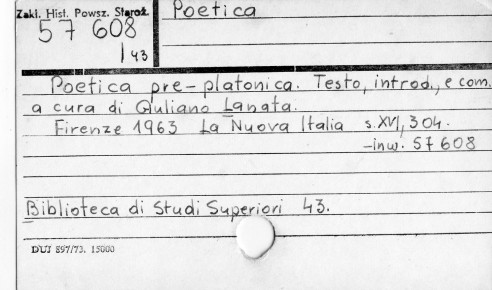 Zakł. Hist. Powsz. Staroż.
57 608
143
Poetica
Poetica pre-platonica. Testo, introd., e com.
a cura di Giuliano Lanata.
Firenze 1963 La Nuova Italia s. XVI, 304.
-inw. 57 608
Biblioteca di Studi Superiori 43.
DUJ 897/73. 15000